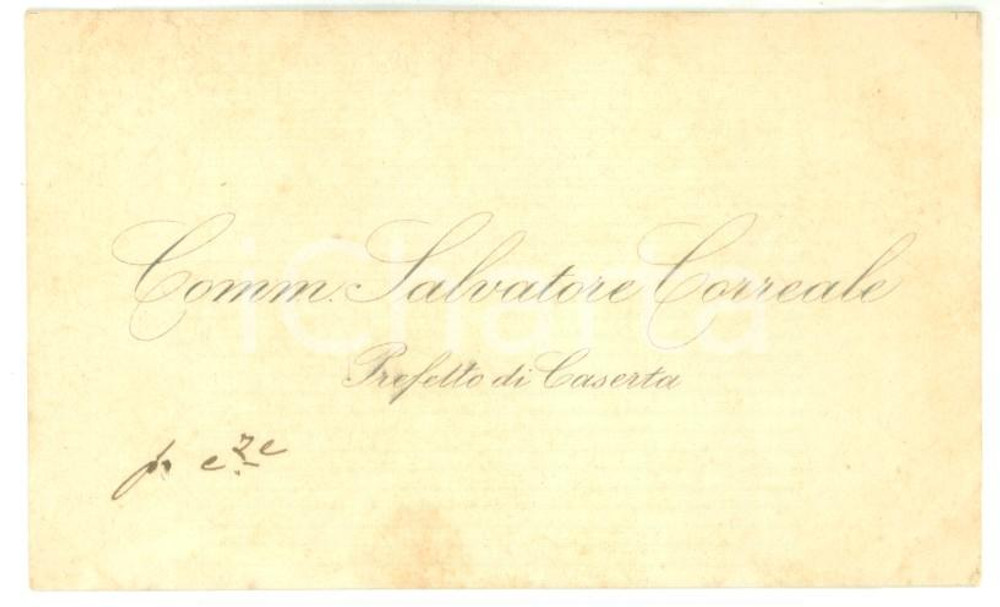 Comm. Salvatore Correale
Prefetto di Caserta
iCharta